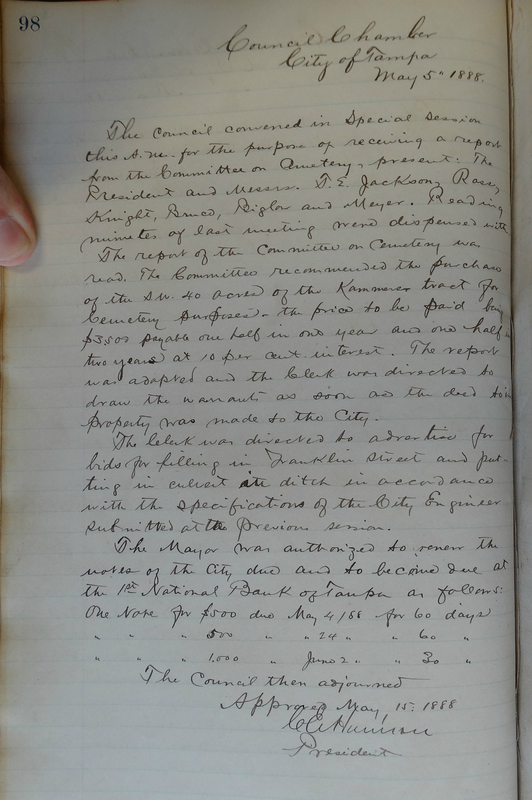 98
Council Chamber
City of Tampa
May 5" 1888.
The Council convened in Special Session
this A.M. for the purpose of receiving a report
from the Committee on Cemetery, present: The
President and Messrs. T. E. Jackson,
Knight, Bruce, Biglow and Meyer. Reading
minutes of last meeting were dispensed with
The report of the Committee on Cemetery was
read. The Committee recommended the purchase
of the S.W. 40 acres of the Kammerer tract for
Cemetery purposes - the price to be paid being
$3,500 payable one half in one year and one half in
two years at 10 per cent interest. The report
was adopted and the Clerk was directed to
draw the warrants as soon as the deed to
property was made to the City.
The Clerk was directed to advertise for
bids for filling in Franklin Street and put-
ting in culvert ditch in accordance
with the specifications of the City Engineer
submitted at the previous session.
The Mayor was authorized to renew the
notes of the City due and to become due at
the 1st National Bank of Tampa as follows:
One Note for $500 due May 4/88 for 60 days
" " " 500 " " 24 " " 60 "
" " " 1.000 " June 2 " " 30 "
The Council then adjourned
Approved May 15. 1888
C C Harrison
President